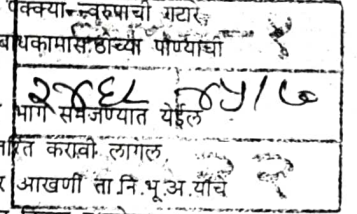 पक्क्या स्वरुपाची गटारे
बांधकामासाठीच्या पाण्याचा १
२४६८ ४५/७
भाग समजण्यात येईल
करावी लागेल.
आखणी ता.नि.भू.अ.यांचे